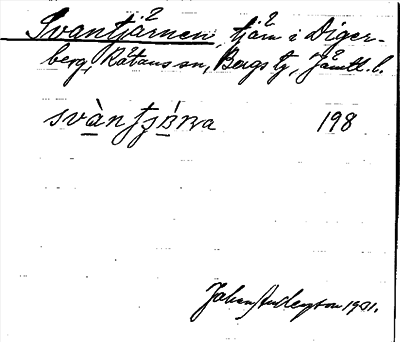 Svantjärnen, tjärn i Diger-
berg, Rätans sn, Bergs tg, Jämtl. l.
svàntjǽrna 198
Johan Anderson 1901.